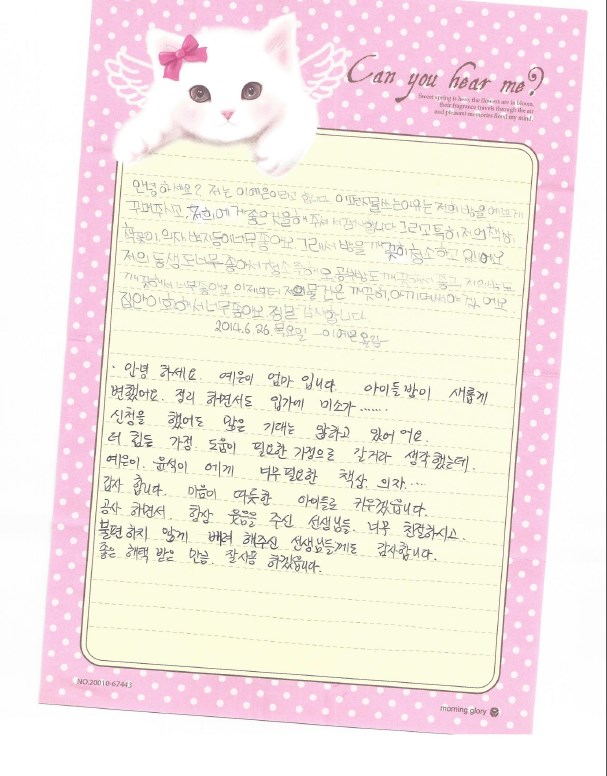 Can you hear me?
Sweet spring is here, the flowers are in bloom,
their fragrance travels through the air
and pleasant memories flood my mind.
안녕하세요? 저는 이예은이라고 합니다. 이편지를쓰는이유는 저희 방을 예쁘게
꾸며주시고, 저희에게 좋은 일을해 주셔서 감사합니다 그리고 특히 저의 책상
책꽂이, 의자, 벽지등이너무좋아요. 그래서 방을 깨끗이 청소하고 있어요
저의 동생도너무 좋아서 청소
깨끗해서 너무좋아요. 이제부터 저의물건은 깨끗히, 아끼며써야 할 거에요
집안이 환해서너무좋아요. 정말 감사합니다
2014.6.26 목요일 -이예은올림-
· 안녕 하세요. 예은이 엄마 입니다. 아이들방이 새롭게
변했어요. 정리 하면서도 입가에 미소가.......
신청을 했어도 많은 기대는 안하고 있어 어요.
더 힘든 가정 도움이 필요한 가정으로 갈거라 생각했는데.
예은이. 윤석이 에게 너무필요한 책상. 의자....
감사 합니다. 마음이 따듯한 아이들로 키우겠습니다.
공사 하면서 항상 웃음을 주신 선생님들. 너무 친절하시고.
불편하지 않게 배려 해주신 선생님들께도 감사합니다.
좋은 혜택 받은 만큼. 잘사용 하겠습니다.
NO.20010-67443
morning glory